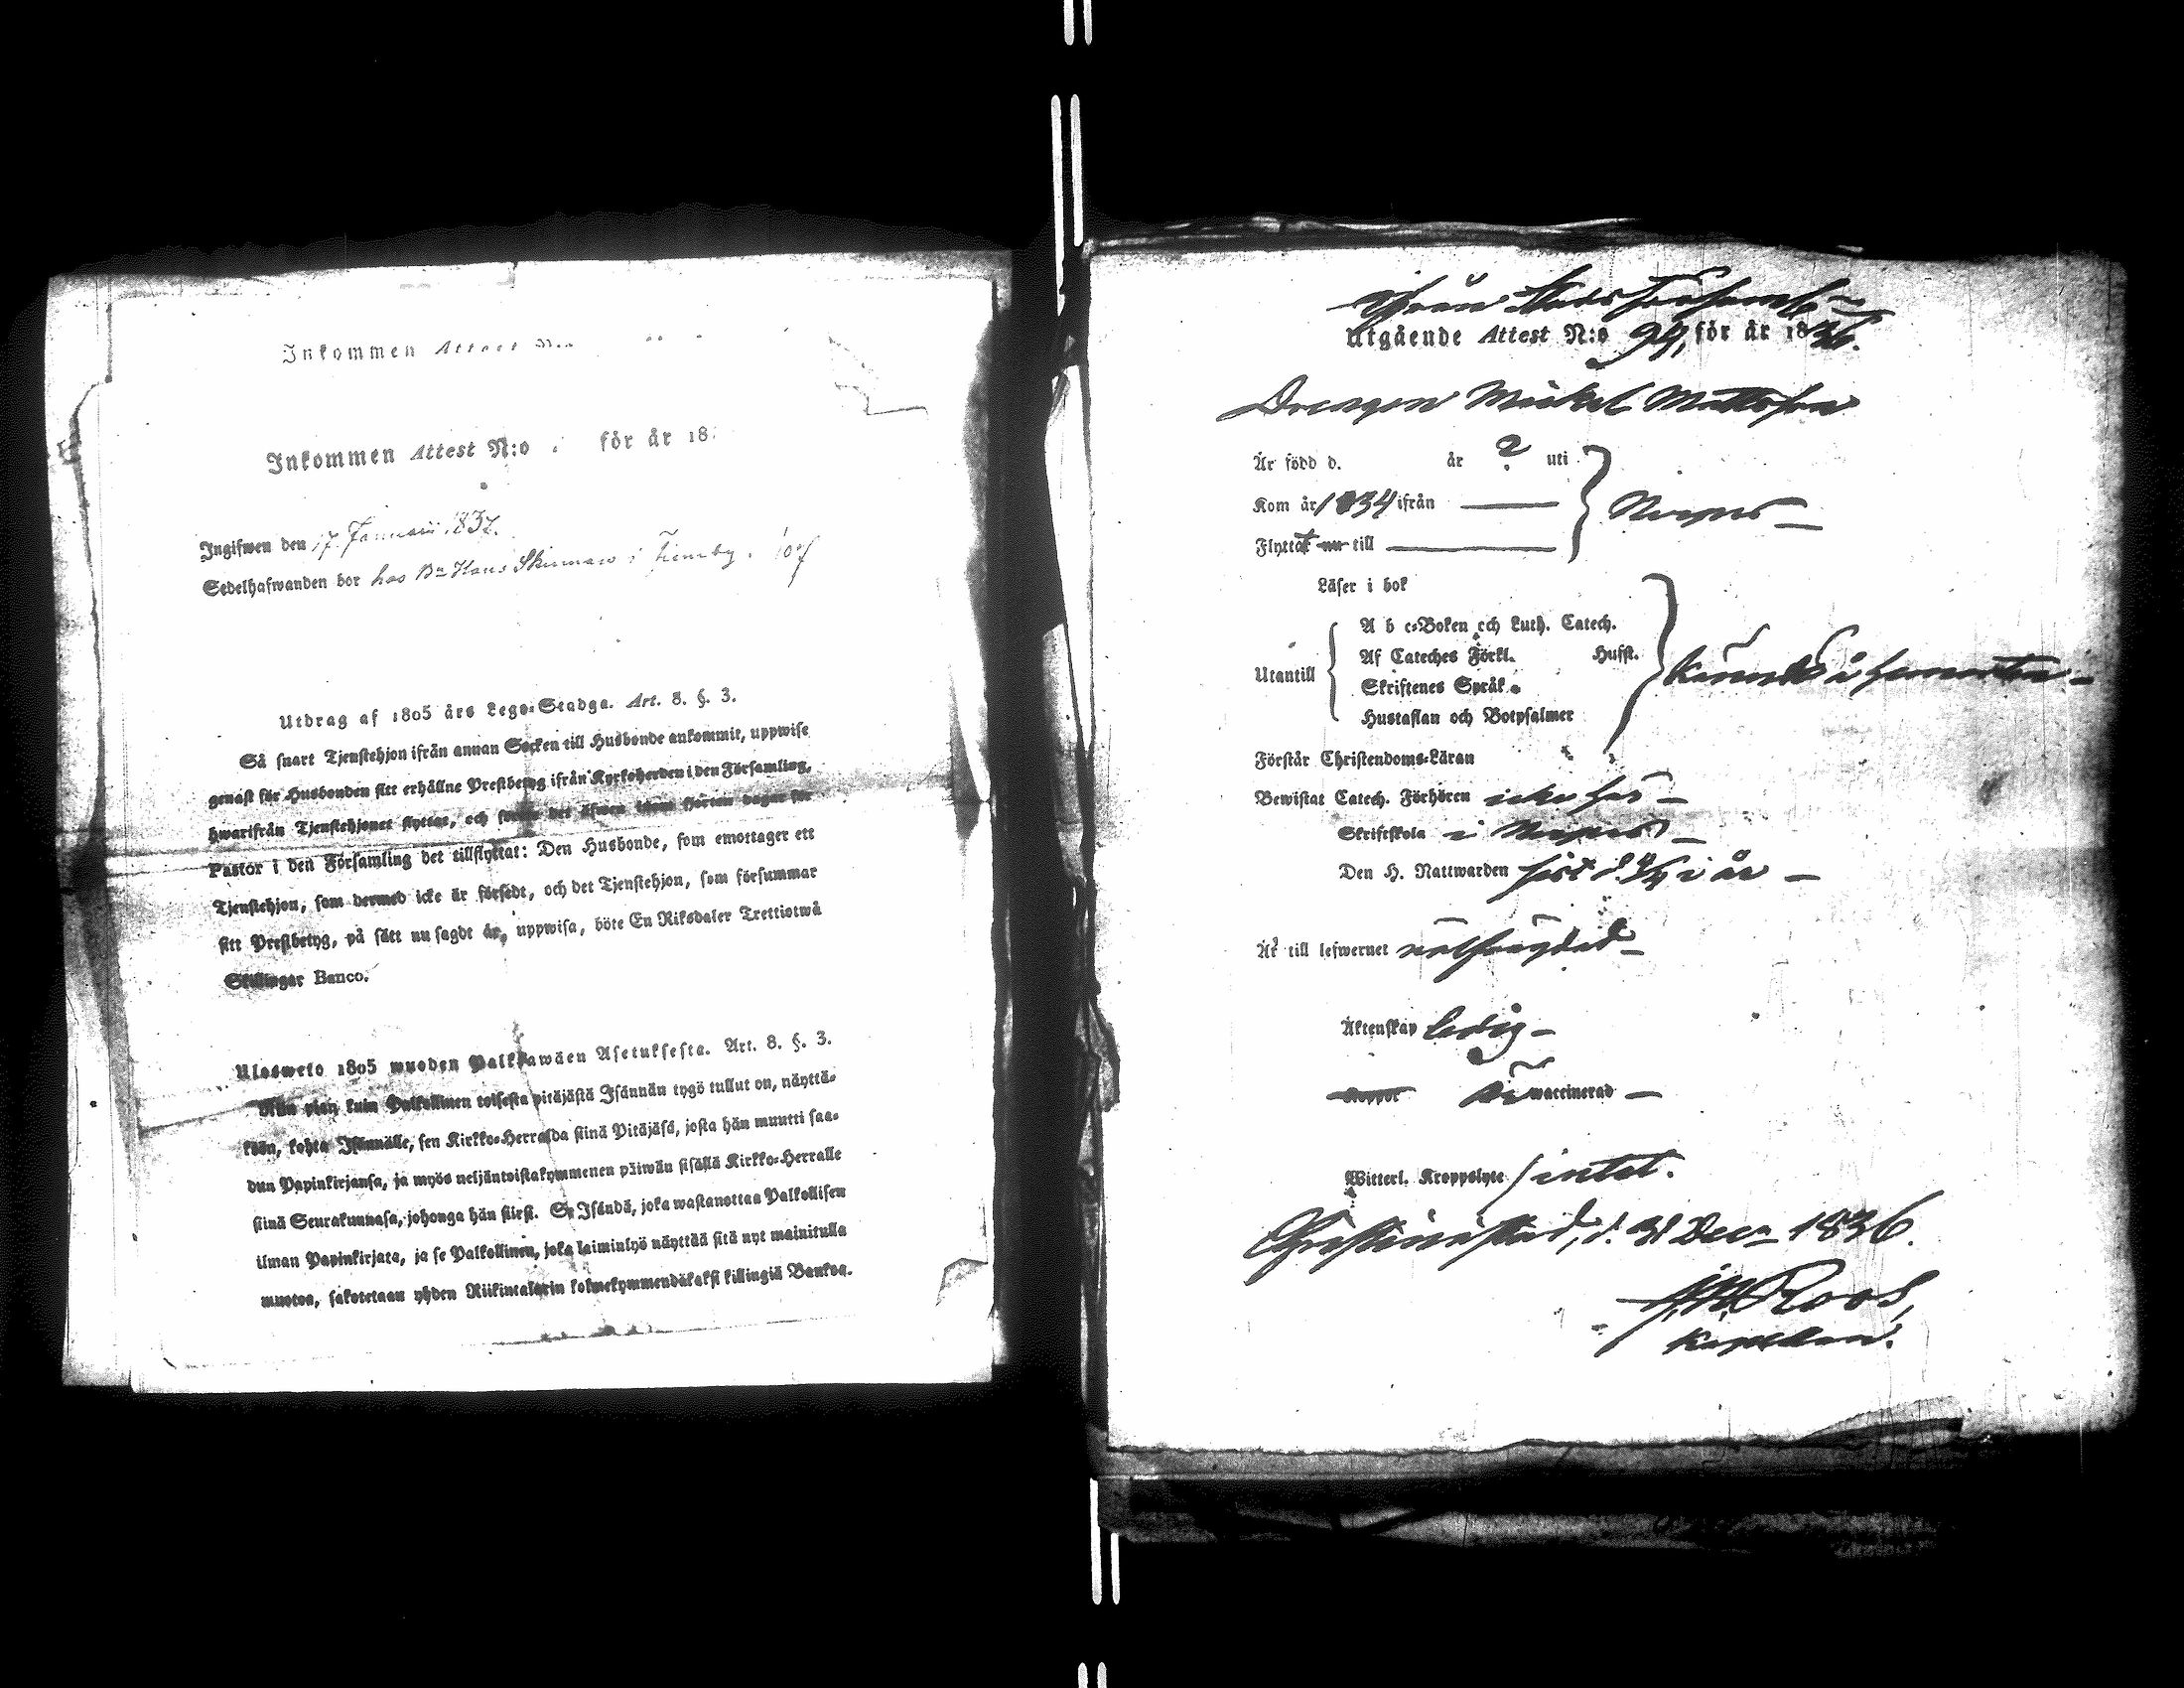 Inkommen Attest N:o
Inkommen Attest N:o för år 18
Ingifwen den 17 Januarii 1837.
Sedelhafwanden bor hos Bn Hans Skinnars i
Utdrag af 1805 års Lego-Stadga. Art. 8. §. 3.
Så snart Tjenstehjon ifrån annan Socken till Husbonde ankommit, uppwise
genast för Husbonden sitt erhållne Prestbetyg ifrån Kyrkoherden i den Församling,
hwarifrån Tjenstehjonet flyttat, och det äfwen inom fjorton dagar för
Pastor i den Församling det tillflyttat: Den Husbonde, som emottager ett
Tjenstehjon, som dermed icke är försedt, och det Tjenstehjon, som försummar
sitt Prestbetyg, på sätt nu sagdt är, uppwisa, böte En Riksdaler Trettiotwå
Skillingar Banco.
Ulosweto 1805 wuoden Palkkawäen Asetuksesta. Art. 8. §. 3.
Niin pian kuin Palkollinen toisesta pitäjästä Isännän tygö tullut on, näyttä-
köön, kohta Isännälle, sen Kirkko-Herralda siinä Pitäjäsä, josta hän muutti saa-
dun Papinkirjansa, ja myös neljäntoistakymmenen päiwän sisällä Kirkko-Herralle
siinä Seurakunnasa, johonga hän siirsi. Se Isändä, joka wastanottaa Palkollisen
ilman Papinkirjata, ja se Palkollinen, joka laiminlyö näyttää sitä nyt mainitulla
muotoa, sakotetaan yhden Riikintalarin kolmekymmendäkaksi killingiä Bankoa.
ifrån Stads Församl
Utgående Attest N:o 94, för år 1836.
Drengen Mickel Mattsson
Är född d. år ? uti
Kom år 1834 ifrån — Nerpes —
Flyttat nu till —
Läser i bok
A b c-Boken och Luth. Catech.
Af Cateches Förkl. Husst.
Utantill
Skriftenes Språk
Hustaflan och Botpsalmer
Förstår Christendoms-Läran
Bewistat Catech. Förhören icke här —
Skriftskola i Nerpes —
Den H. Nattwarden sist d. i år —
Är till lefwernet välfrägdad —
Äktenskap ledig —
Koppor waccinerad —
Witterl. Kroppslyte intet.
Christinæstad, d. 31 Dec. 1836.
Roos,
Kapellan.